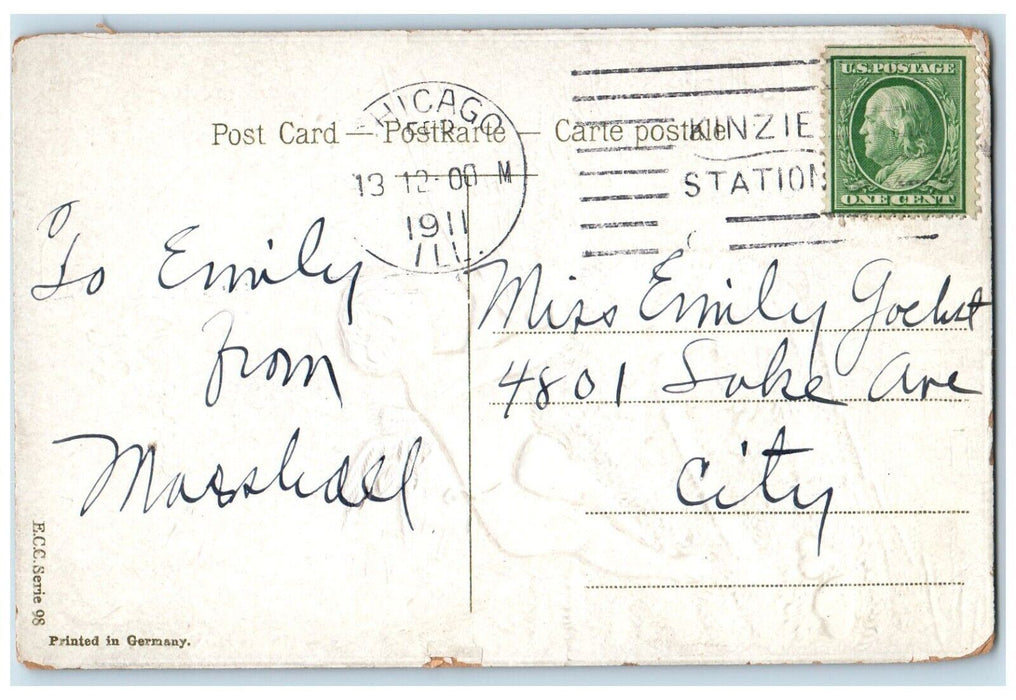 Post Card — Postkarte — Carte postale
CHICAGO
FEB
13 12-00 M
1911
ILL.
KINZIE
STATION
U.S. POSTAGE
ONE CENT
To Emily
from
Marshall
Miss Emily
4801 Lake Ave
City
E.C.C. Serie 98
Printed in Germany.